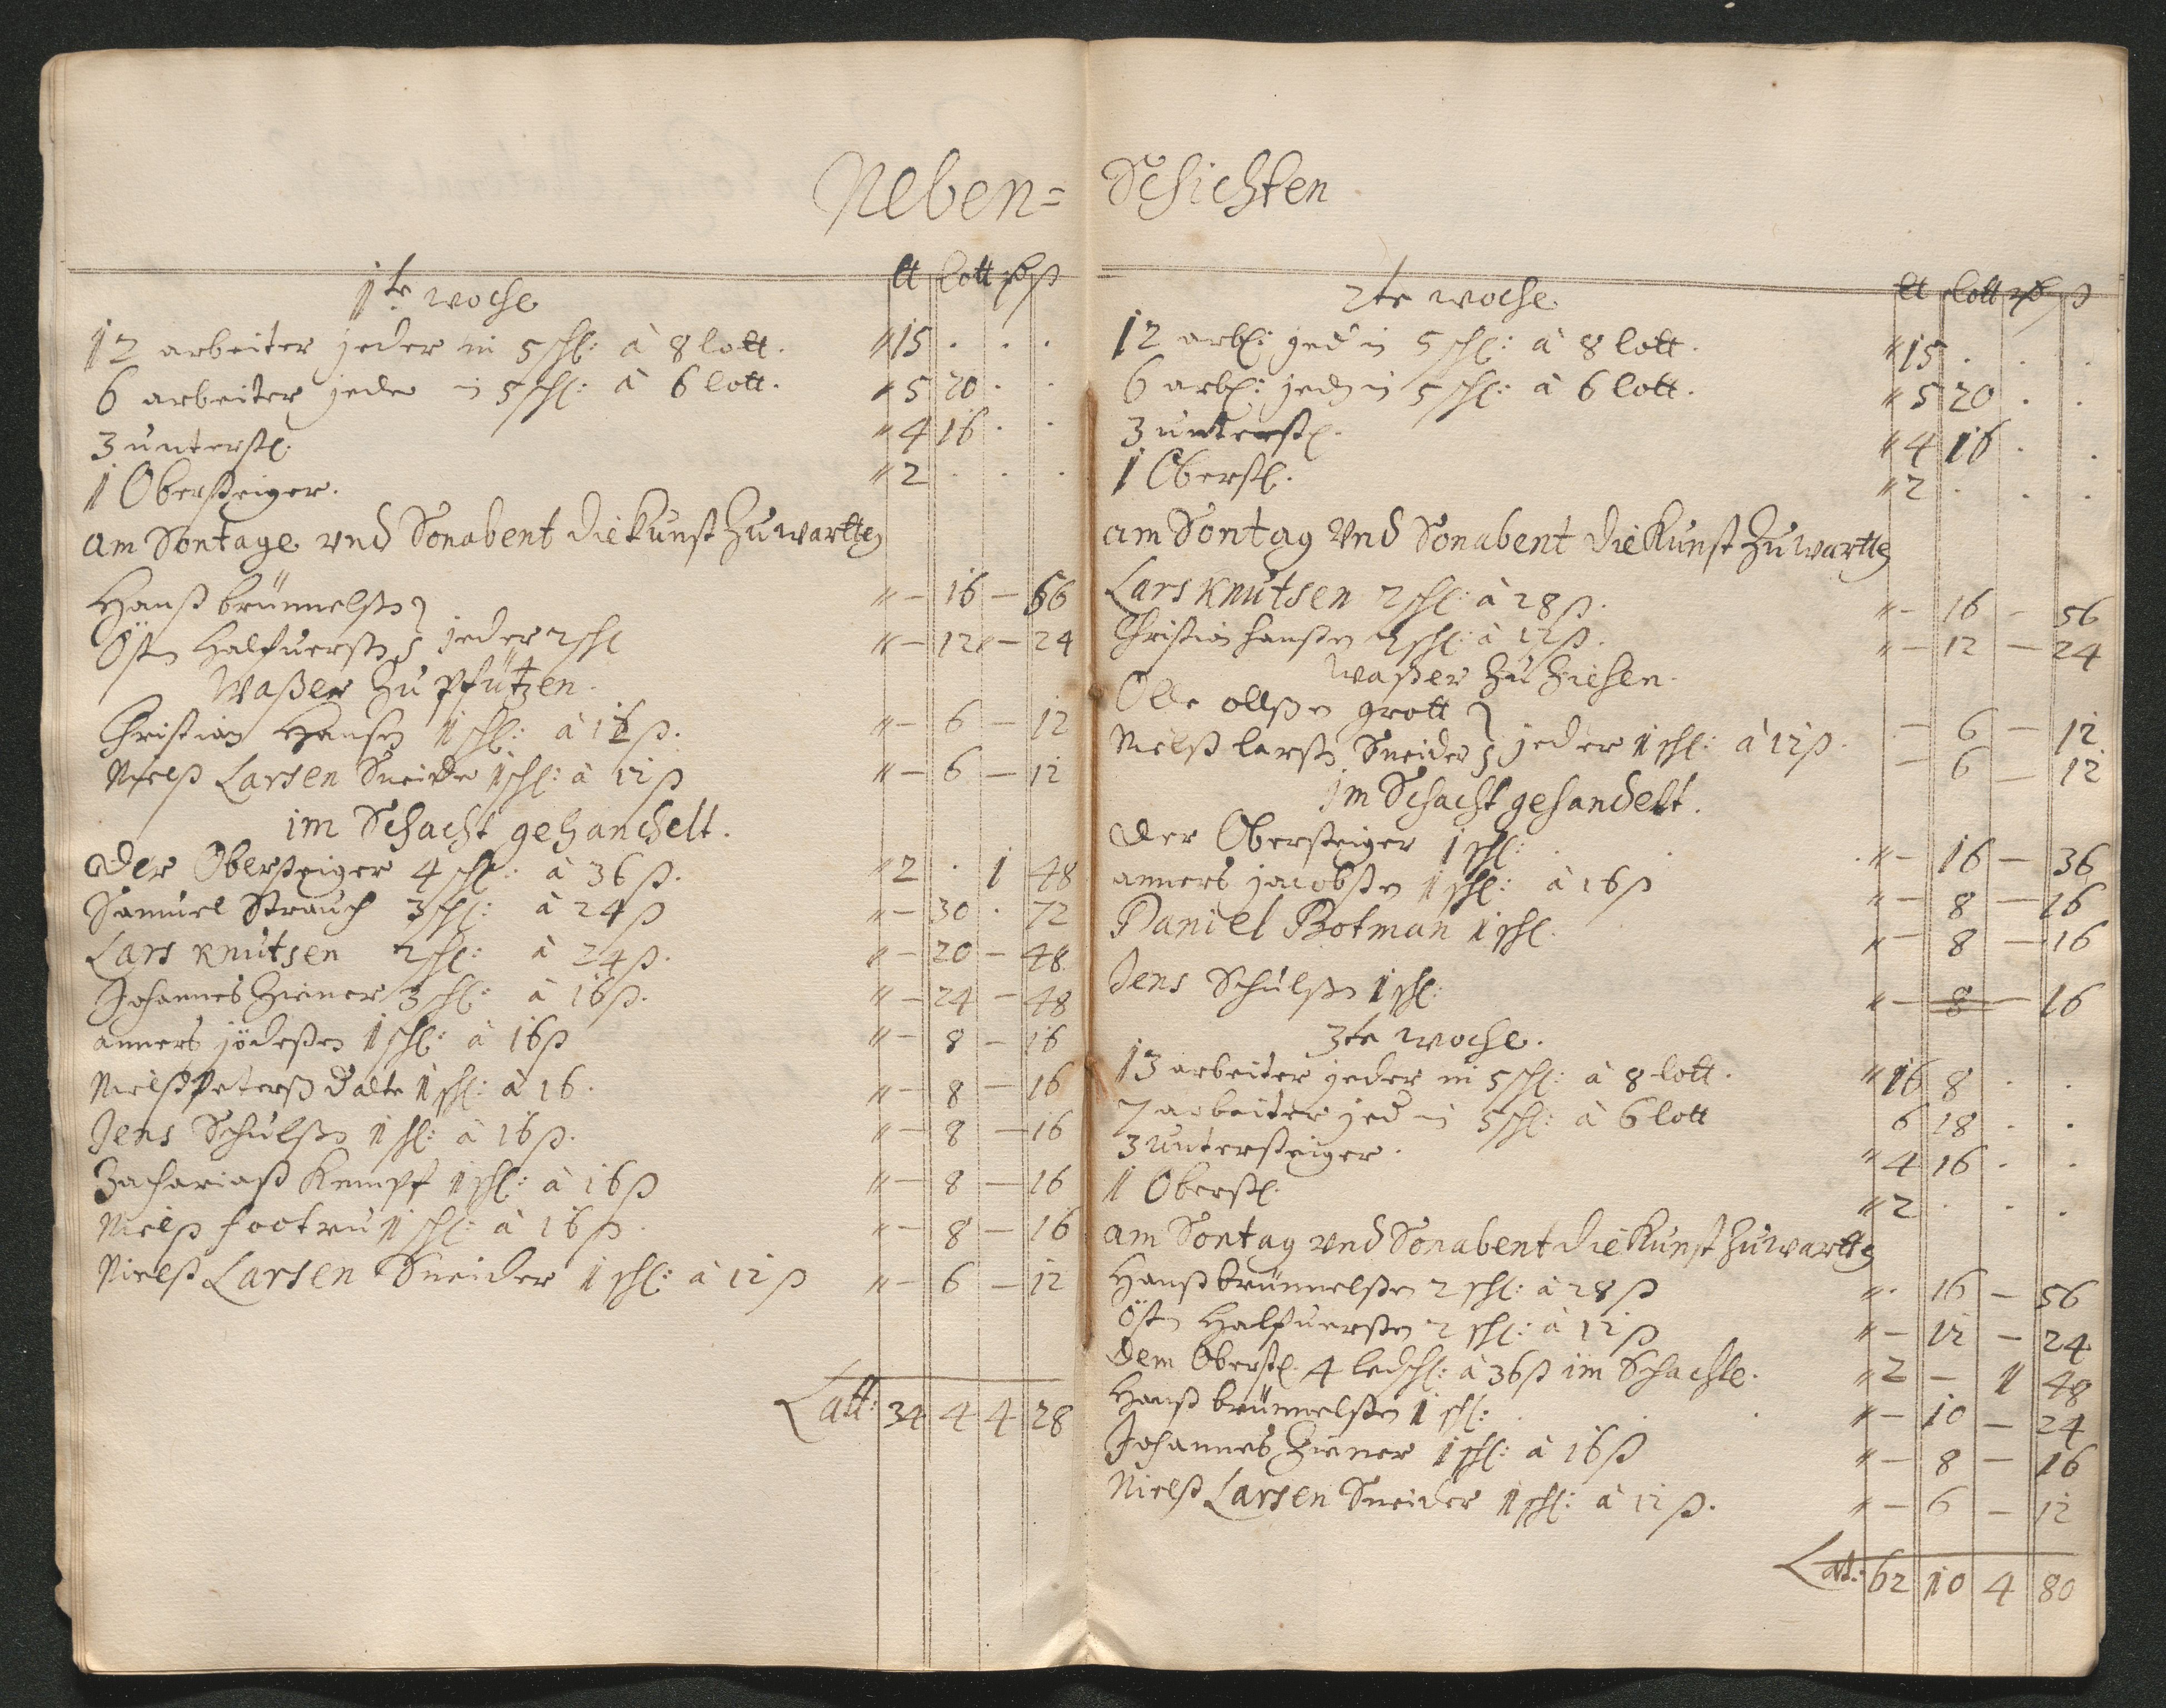 Neben= Schichten
1te woche lt Lott rß ß
12 arbeiter jeder in 5 schl: à 8 lott. " 15 . . .
6 arbeiter jeder in 5 schl: à 6 lott. " 5 20 . .
3 unterstl. " 4 16 . .
1 Obersteiger. " 2 . . .
am Sontage vnd Sonabent die Kunst Zuwartten
Hanß brünnelßen } " – 16 – 56
Östen Halfuerßen } jeder 2 schl " – 12 " – 24
Waßer Zu pfützen.
Christian Hansen 1 schl: à 12 ß. " – 6 – 12
Nielß Larsen Sneider 1 schl: à 12 ß " – 6 – 12
im Schacht gehandelt.
Der Obersteiger 4 schl: à 36 ß. " 2 . 1 48
Samuel Strauch 3 schl: à 24 ß " – 30 . 72
Lars Knutsen 2 schl: à 24 ß. " – 20 – 48
Johannes Ziener 3 schl: à 16 ß. " – 24 – 48
anners jödeßen 1 schl: à 16 ß " – 8 – 16
Nielß Peterß dalte 1 schl: à 16. " – 8 – 16
Jens Schulßen 1 schl: à 16 ß. " – 8 – 16
Zachariaß Kempf 1 schl: à 16 ß " – 8 – 16
Nielß footru 1 schl: à 16 ß. " – 8 – 16
Nielß Larsen Sneider 1 schl: à 12 ß " – 6 – 12
Latt: 34 4 4 28
2te woche lt Lott rß ß
12 arb: jed in 5 schl: à 8 lott. " 15 . . .
6 arb: jed in 5 schl: à 6 lott. " 5 20 . .
3 unterstl. " 4 16 . .
1 Oberstl. " 2 . . .
am Sontag Vnd Sonabent die Kunst Zuwartten
Lars Knutsen 2 schl: à 28 ß. " – 16 – 56
Christian hanßen 2 schl: à 12 ß. " – 12 – 24
waßer Zu Ziehen.
Olle ollßen grott } – 6 – 12
Nielß larßen Sneider } jeder 1 schl: à 12 ß. – 6 – 12
im Schacht gehandelt.
Der Obersteiger 1 schl: . . " – 16 – 36
anners jacobßen 1 schl: à 16 ß " – 8 – 16
Daniel Botman 1 schl. " – 8 – 16
Jens Schulßen 1 schl: " – 8 – 16
3te woche.
13 arbeiter jeder in 5 schl: à 8 lott. " 16 8 . .
7 arbeiter jed in 5 schl: à 6 lott 6 18 . .
3 untersteiger. " 4 16 . .
1 Oberstl. " 2 . . .
am Sontag vnd Sonabent die Kunst Zuwartten
Hanß brünnelßen 2 schl: à 28 ß " . 16 – 56
Östen Halfuerßen 2 schl: à 12 ß " – 12 – 24
Dem Oberstl. 4 ledschl: à 36 ß im Schachte. " 2 – 1 48
Hanß brünnelßen 1 schl: . . . " – 10 – 24
Johannes Ziener 1 schl: à 16 ß " – 8 – 16
Nielß Larsen Sneider 1 schl: à 12 ß. " – 6 – 12
Lat: 62 10 4 80